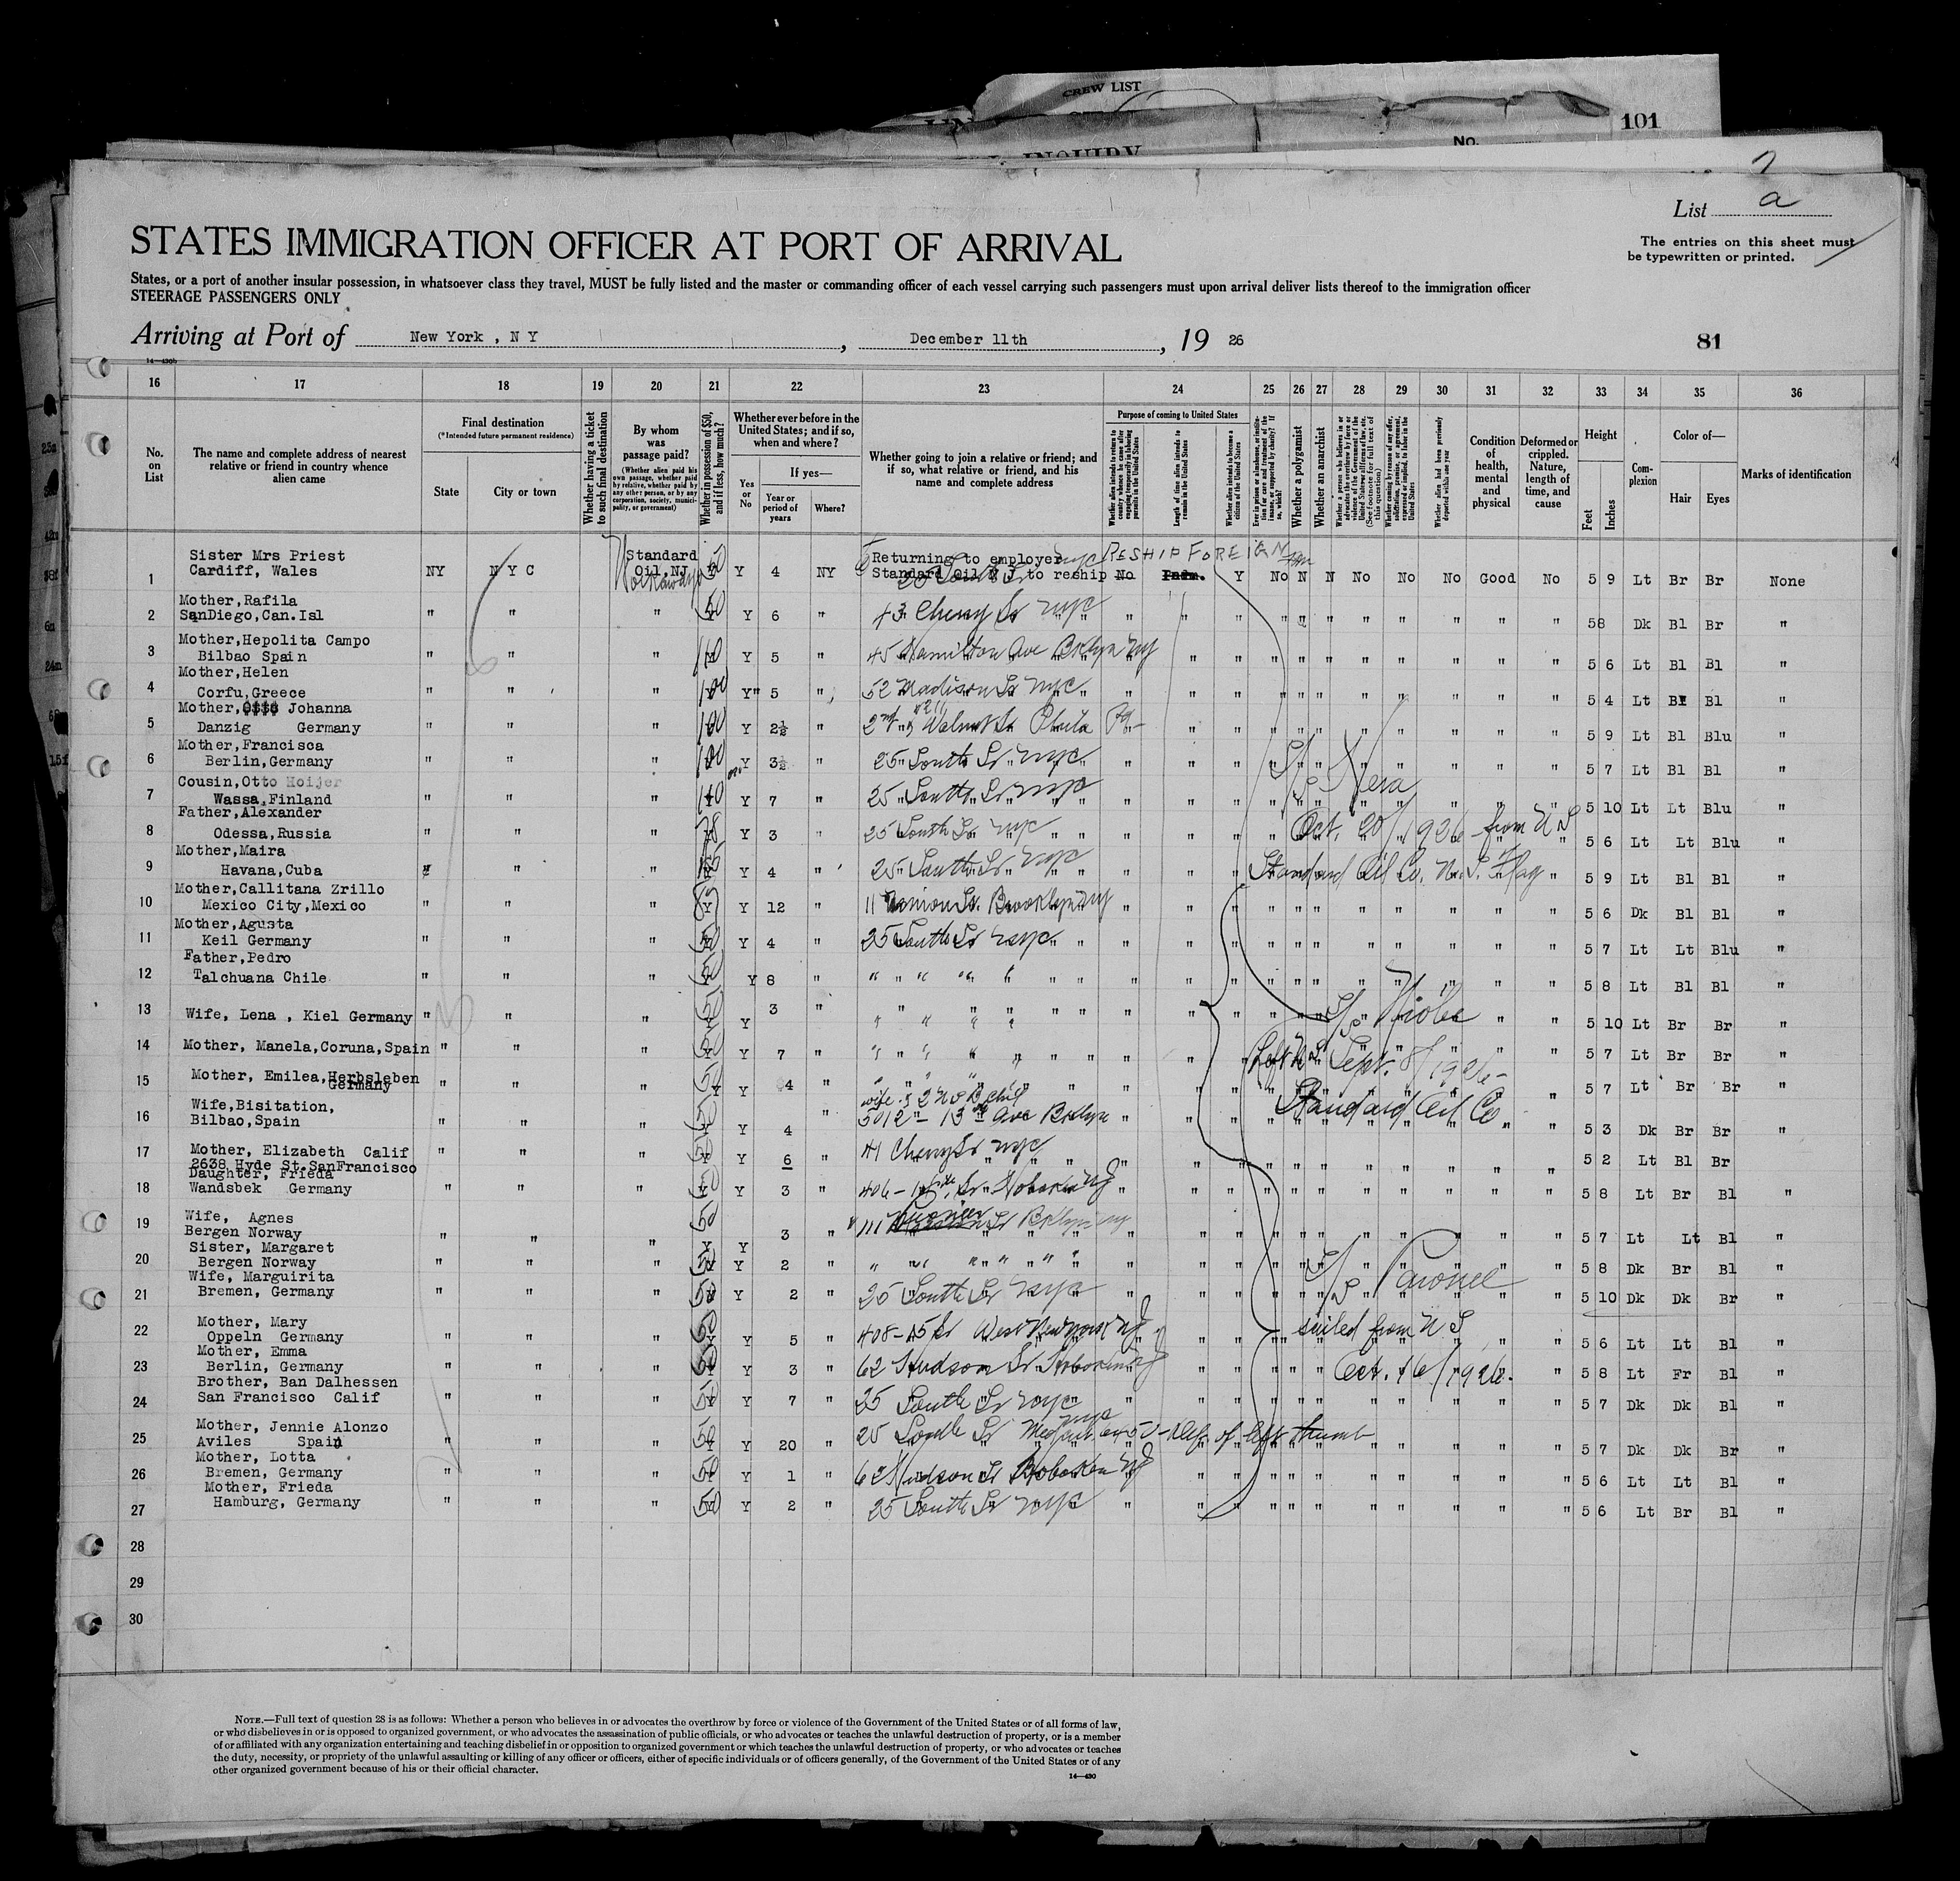 CREW LIST
101
INQUIRY
No.
List 2
a
STATES IMMIGRATION OFFICER AT PORT OF ARRIVAL
The entries on this sheet must
be typewritten or printed.
States, or a port of another insular possession, in whatsoever class they travel, MUST be fully listed and the master or commanding officer of each vessel carrying such passengers must upon arrival deliver lists thereof to the immigration officer
STEERAGE PASSENGERS ONLY
Arriving at Port of New York , N Y , December 11th , 19 26
81
14—430b
16 17 18 19 20 21 22 23 24 25 26 27 28 29 30 31 32 33 34 35 36
No. on List
The name and complete address of nearest relative or friend in country whence alien came
Final destination
(*Intended future permanent residence)
State
City or town
Whether having a ticket to such final destination
By whom was passage paid?
(Whether alien paid his own passage, whether paid by relative, whether paid by any other person, or by any corporation, society, municipality, or government)
Whether in possession of $50, and if less, how much?
Whether ever before in the United States; and if so, when and where?
Yes or No
If yes—
Year or period of years
Where?
Whether going to join a relative or friend; and if so, what relative or friend, and his name and complete address
Purpose of coming to United States
Whether alien intends to return to country whence he came after engaging temporarily in laboring pursuits in the United States
Length of time alien intends to remain in the United States
Whether alien intends to become a citizen of the United States
Ever in prison or almshouse, or institution for care and treatment of the insane, or supported by charity? If so, which?
Whether a polygamist
Whether an anarchist
Whether a person who believes in or advocates the overthrow by force or violence of the Government of the United States or all forms of law, etc. (See footnote for full text of this question)
Whether coming by reason of any offer, solicitation, promise, or agreement, expressed or implied, to labor in the United States
Whether alien had been previously deported within one year
Condition of health, mental and physical
Deformed or crippled. Nature, length of time, and cause
Height
Feet
Inches
Complexion
Color of—
Hair
Eyes
Marks of identification
1 Sister Mrs Priest Cardiff, Wales NY N Y C Standard Oil,NJ 50 Y 4 NY Returning to employer Standard Oil N J to reship RESHIP FOREIGN No Perm. Y No N N No No No Good No 5 9 Lt Br Br None
2 Mother,Rafila SanDiego,Can.Isl " " " 50 Y 6 " 43 Cherry St NYC " " " " " " " " " " " 5 8 Dk Bl Br "
3 Mother,Hepolita Campo Bilbao Spain " " " Y 5 " 45 Hamilton Ave Bklyn NY " " " " " " " " " " " 5 6 Lt Bl Bl "
4 Mother,Helen Corfu,Greece " " " 100 Y" 5 " 52 Madison St NYC " " " " " " " " " " " 5 4 Lt Bl Bl "
5 Mother, Johanna Danzig Germany " " " 100 Y 2½ " 2nd & Walnut St Phila Pa " " " " " " " " " " 5 9 Lt Bl Blu "
6 Mother,Francisca Berlin,Germany " " " 100 Y 3½ " 25 South St NYC " " " " " " " " " " " 5 7 Lt Bl Bl "
7 Cousin,Otto Hoijer Wassa,Finland " " " 140 Y 7 " 25 South St NYC " " " " " " " " " " " 5 10 Lt Lt Blu "
8 Father,Alexander Odessa,Russia " " " 78 Y 3 " 25 South St NYC " " " " 5 6 Lt Lt Blu "
S/S Hera
Oct. 20/1926 from U S
9 Mother,Maira Havana,Cuba " " " Y 4 " 25 South St NYC " " " " 5 9 Lt Bl Bl "
Standard Oil Co. N.J. Flag
10 Mother,Callitana Zrillo Mexico City,Mexico " " " 85 Y 12 " 11 Union St. Brooklyn NY " " " " " " " " " " " 5 6 Dk Bl Bl "
11 Mother,Agusta Keil Germany " " " 50 Y 4 " 25 South St NYC " " " " " " " " " " " 5 7 Lt Lt Blu "
12 Father,Pedro Talchuana Chile " " " 50 Y 8 " " " " " " " " " " " " " " " " " " 5 8 Lt Bl Bl "
13 Wife, Lena , Kiel Germany " " " 50 Y 3 " " " " " " " " " " " 5 10 Lt Br Br "
S/S Niobe
14 Mother, Manela,Coruna,Spain " " " 50 Y 7 " " " " " " " " " " " 5 7 Lt Br Br "
Left U S Sept. 8/1926
15 Mother, Emilea,Herbsleben Germany " " " 50 Y 4 " " " " " " " " " 5 7 Lt Br Br "
Standard Oil Co
16 Wife,Bisitation, Bilbao,Spain " " " 50 Y 4 " 5012 - 13th Ave Bklyn " " " " " " 5 3 Dk Br Br "
17 Mother, Elizabeth Calif 2638 Hyde St.SanFrancisco " " " 50 Y 6 " 41 Cherry St NYC " " " " " " " " " " " 5 2 Lt Bl Br
18 Daughter, Frieda Wandsbek Germany " " " 50 Y 3 " 406 - St. Hoboken NJ " " " " " " " " " " " 5 8 Lt Br Bl "
19 Wife, Agnes Bergen Norway " " " 50 Y 3 " 111 Pioneer St Bklyn NY " " " " " " " " " " " 5 7 Lt Lt Bl "
20 Sister, Margaret Bergen Norway " " " 50 Y 2 " " " " " " " " " " " 5 8 Dk Br Bl "
21 Wife, Marguirita Bremen, Germany " " " 50 Y 2 " 25 South St NYC " " " " " " " 5 10 Dk Dk Br "
22 Mother, Mary Oppeln Germany " " " 50 Y 5 " 408 - 15 St West New York NJ " " " " " " " 5 6 Lt Lt Bl "
sailed from U S
23 Mother, Emma Berlin, Germany " " " 50 Y 3 " 62 Hudson St Hoboken NJ " " " " " " 5 8 Lt Fr Bl "
Oct. 16/1926.
24 Brother, Ban Dalhessen San Francisco Calif " " " 50 Y 7 " 25 South St NYC " " " " " " " " " " " 5 7 Dk Dk Bl "
25 Mother, Jennie Alonzo Aviles Spain " " " 50 Y 20 " 25 South St NYC of left thumb " " " " 5 7 Dk Dk Br "
26 Mother, Lotta Bremen, Germany " " " 50 Y 1 " 62 Hudson St Hoboken NJ " " " " " " " " " " " 5 6 Lt Lt Bl "
27 Mother, Frieda Hamburg, Germany " " " 50 Y 2 " 25 South St NYC " " " " " " " " " " " 5 6 Lt Br Bl "
28
29
30
NOTE.—Full text of question 28 is as follows: Whether a person who believes in or advocates the overthrow by force or violence of the Government of the United States or of all forms of law,
or who disbelieves in or is opposed to organized government, or who advocates the assassination of public officials, or who advocates or teaches the unlawful destruction of property, or is a member
of or affiliated with any organization entertaining and teaching disbelief in or opposition to organized government or which teaches the unlawful destruction of property, or who advocates or teaches
the duty, necessity, or propriety of the unlawful assaulting or killing of any officer or officers, either of specific individuals or of officers generally, of the Government of the United States or of any
other organized government because of his or their official character.
14—430